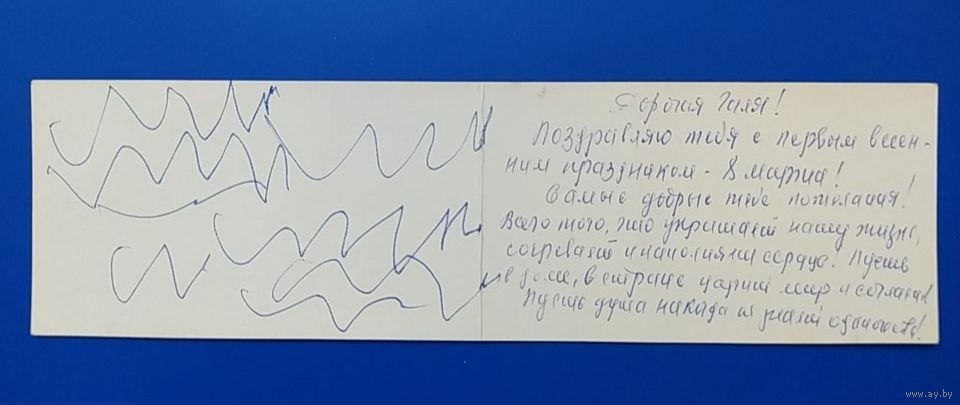 Дорогая Галя!
Поздравляю тебя с первым весен-
ним праздником - 8 марта!
Самые добрые тебе пожелания!
Всего того, что украшает нашу жизнь,
согревает и наполняет сердца! Пусть
в доме, в стране царит мир и согласие!
Пусть душа никогда не знает одиночества!
www.ay.by